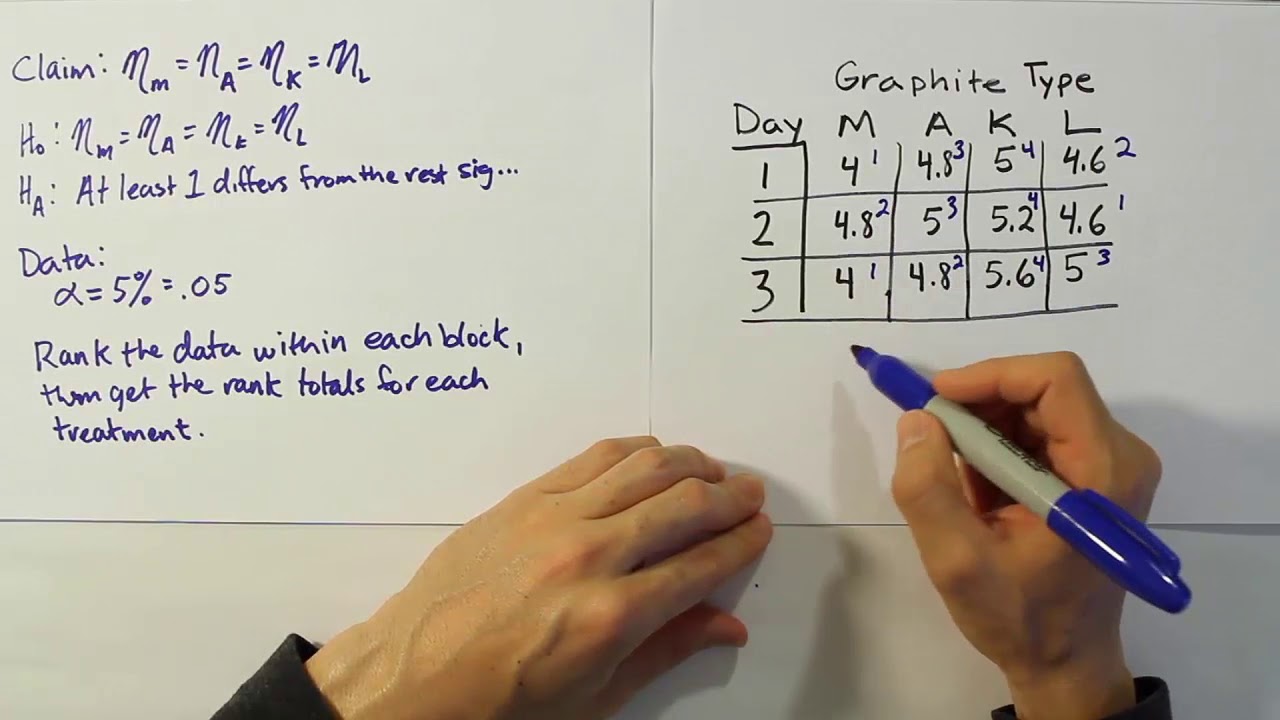 Claim: ηm = ηA = ηK = ηL
H₀: ηm = ηA = ηk = ηL
HA: At least 1 differs from the rest sig...
Data:
α = 5% = .05
Rank the data within each block,
thm get the rank totals for each
treatment.
Graphite Type
Day M A K L
1 4¹ 4.8³ 5⁴ 4.6²
2 4.8² 5³ 5.2⁴ 4.6¹
3 4¹ 4.8² 5.6⁴ 5³